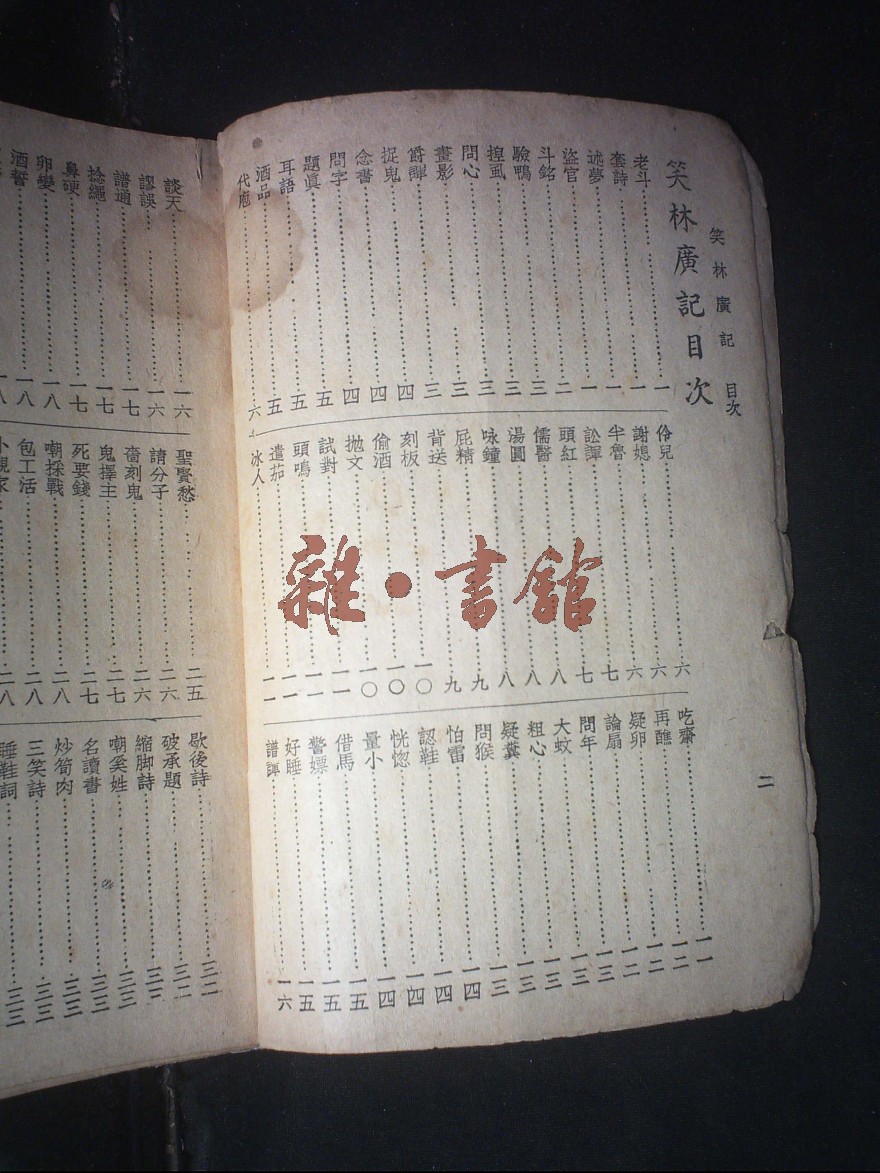 笑林廣記 目次
二
笑林廣記目次
老斗 一
套詩 一
述夢 一
盜官 二
斗銘 三
驗鴨 三
捏虱 三
問心 三
畫影 三
爵譚 四
捉鬼 四
念書 四
問字 四
題眞 五
耳語 五
酒品 五
代庖 六
伶兒 六
謝媳 六
半魯 六
訟譚 七
頭紅 七
儒醫 八
湯圓 八
咏鐘 八
屁精 九
背送 九
刻板 一〇
偷酒 一〇
拋文 一〇
試對 一一
頭鳴 一一
遣茄 一一
冰人 一一
吃齋 一一
再醮 一二
疑卵 一二
論扇 一二
問年 一三
大蚊 一三
粗心 一三
疑糞 一三
問猴 一四
怕雷 一四
認鞋 一四
恍惚 一四
量小 一四
借馬 一五
警嫖 一五
好睡 一五
譜譚 一六
談天 一六
謬誤 一六
譜通 一七
捻繩 一七
鼻硬 一七
卵變 一八
酒誓 一八
聖賢愁 二五
請分子 二六
嗇刻鬼 二六
鬼擇主 二七
死要錢 二七
嘲採戰 二八
包工活 二八
小親家 二八
歇後詩 三二
破承題 三二
縮脚詩 三三
嘲奚姓 三三
名讀書 三三
炒筍肉 三三
三笑詩 三三
睡鞋詞 三三
雜·書館